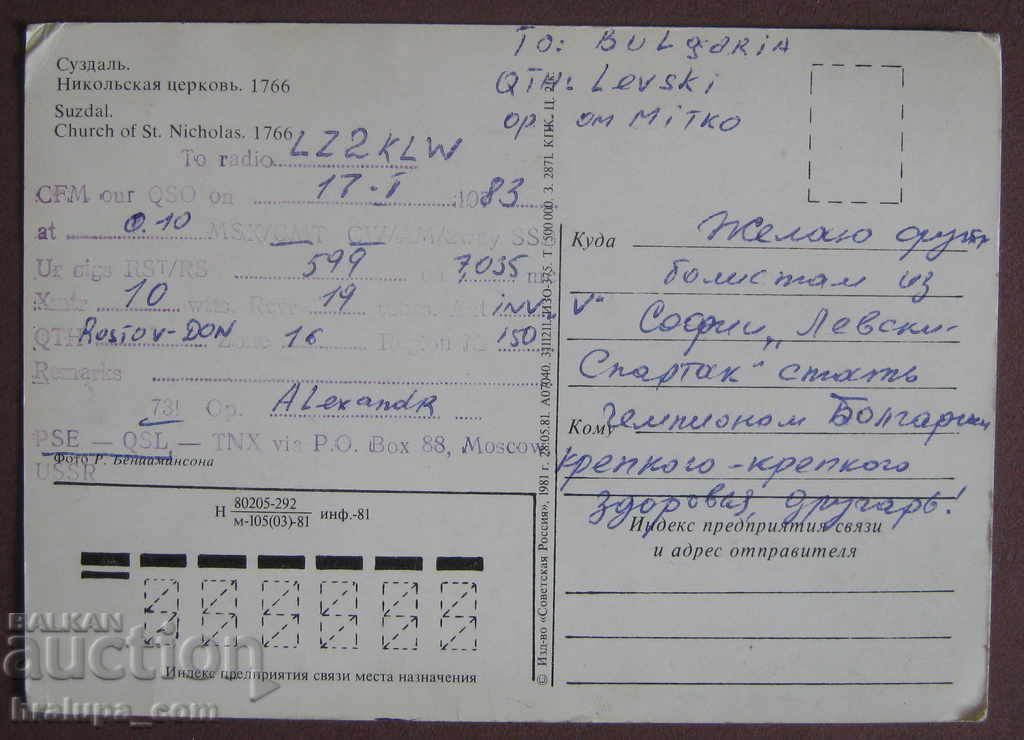 Суздаль.
Никольская церковь. 1766
Suzdal.
Church of St. Nicholas. 1766
TO: BULgARIA
QTH: Levski
op. om MiTKO
To radio LZ2KLW
CFM our QSO on 17-I 1983
at 0.10 MSK/GMT CW/AM/2way SSB
Ur sigs RST/RS 599 on 7,035 m
Xmtr 10 with Rcvr 19 tubes. Ant inv „V"
QTH Rostov-DON Zone 16 Region Nr 150
Remarks
73! Op. ALexandR
PSE — QSL — TNX via P.O. Box 88, Moscow
USSR
Фото Р. Бениаминсона
Н 80205-292
м-105(03)-81 инф.-81
Индекс предприятия связи места назначения
© Изд-во «Советская Россия». 1981 г. 28.05.81. А07040. 3.11211. ИЗО-375. Т. 500 000. З. 2871. КПК. Ц. 2 к.
Куда Желаю фут-
болистам из
Софии „Левски-
Спартак" стать
Кому Чемпионом Болгарии
крепкого-крепкого
здоровья, другарь!
Индекс предприятия связи
и адрес отправителя
BALKAN
auction
hralupa_com